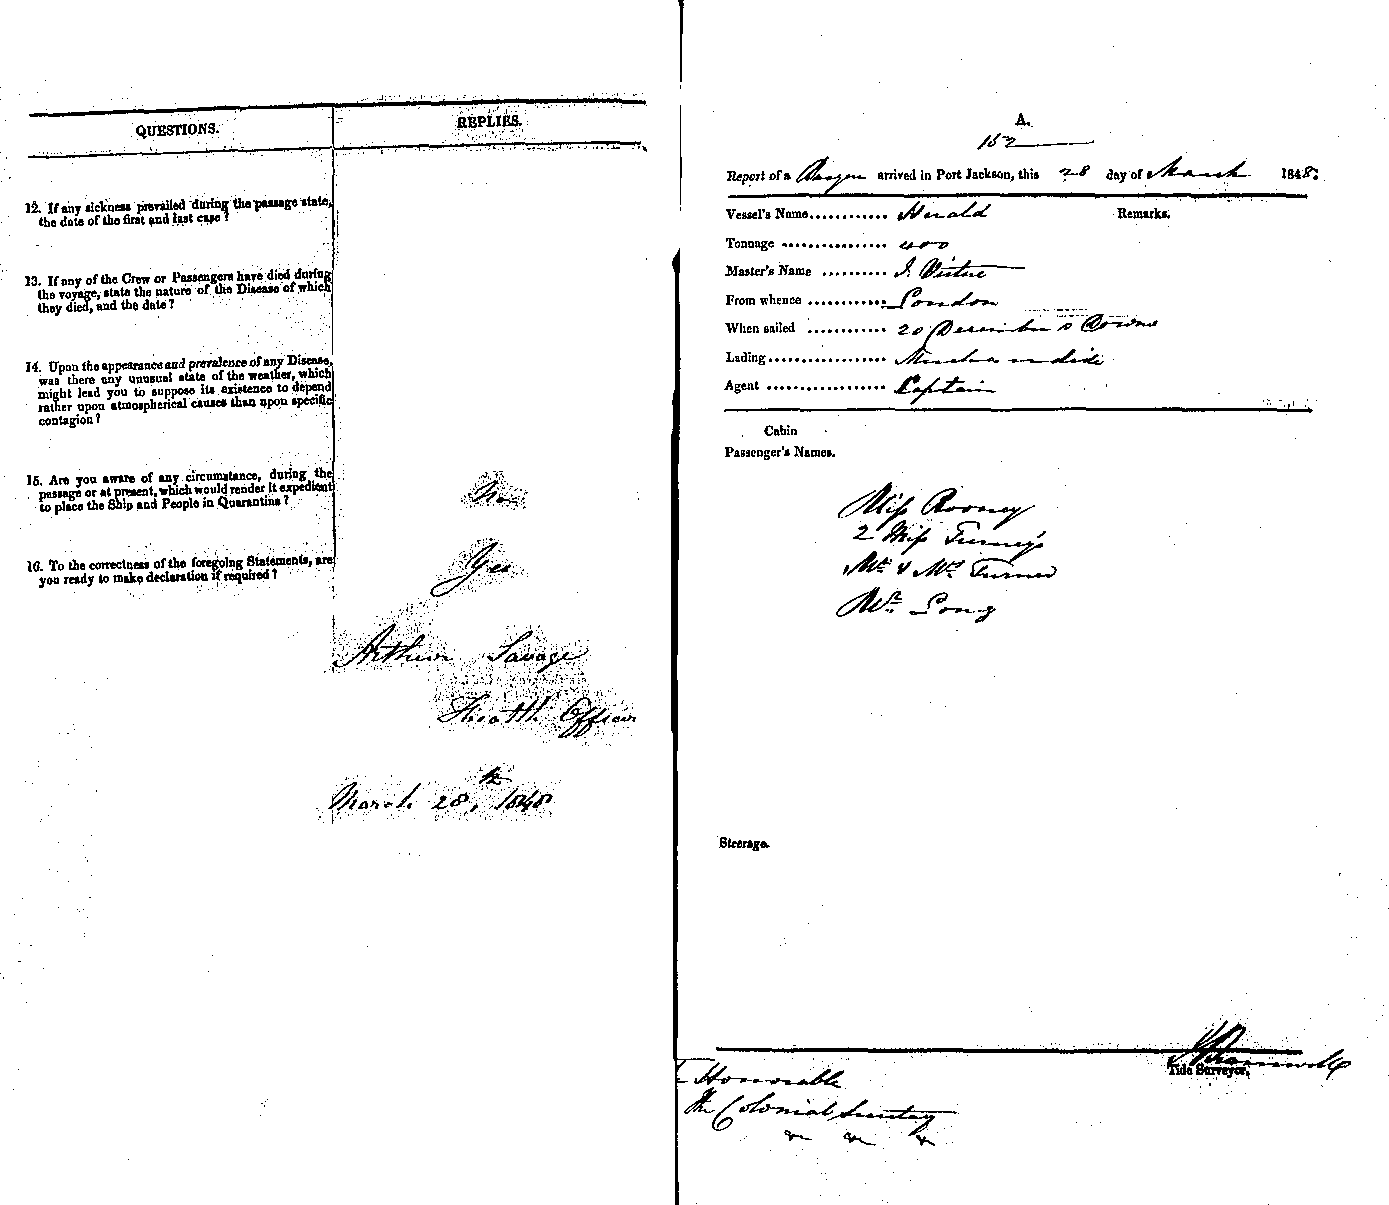 QUESTIONS.
REPLIES.
12. If any sickness prevailed during the passage state,
the date of the first and last case ?
13. If any of the Crew or Passengers have died during
the voyage, state the nature of the Disease of which
they died, and the date ?
14. Upon the appearance and prevalence of any Disease,
was there any unusual state of the weather, which
might lead you to suppose its existence to depend
rather upon atmospherical causes than upon specific
contagion ?
15. Are you aware of any circumstance, during the
passage or at present, which would render it expedient
to place the Ship and People in Quarantine ?
No
16. To the correctness of the foregoing Statements, are
you ready to make declaration if required ?
Yes
Arthur Savage
Health Officer
March 28th, 1848
A.
152
Report of a Barque arrived in Port Jackson, this 28 day of March 1848.
Vessel's Name............ Herald
Remarks.
Tonnage ................ 400
Master's Name .......... J. Virtue
From whence ............ London
When sailed ............ 20 December Downs
Lading.................. Merchandise
Agent .................. Captain
Cabin
Passenger's Names.
Miss Rooney
2 Miss Turney's
Mr & Mrs Turner
Mr Long
Steerage.
Tide Surveyor.
Honorable
The Colonial Secretary